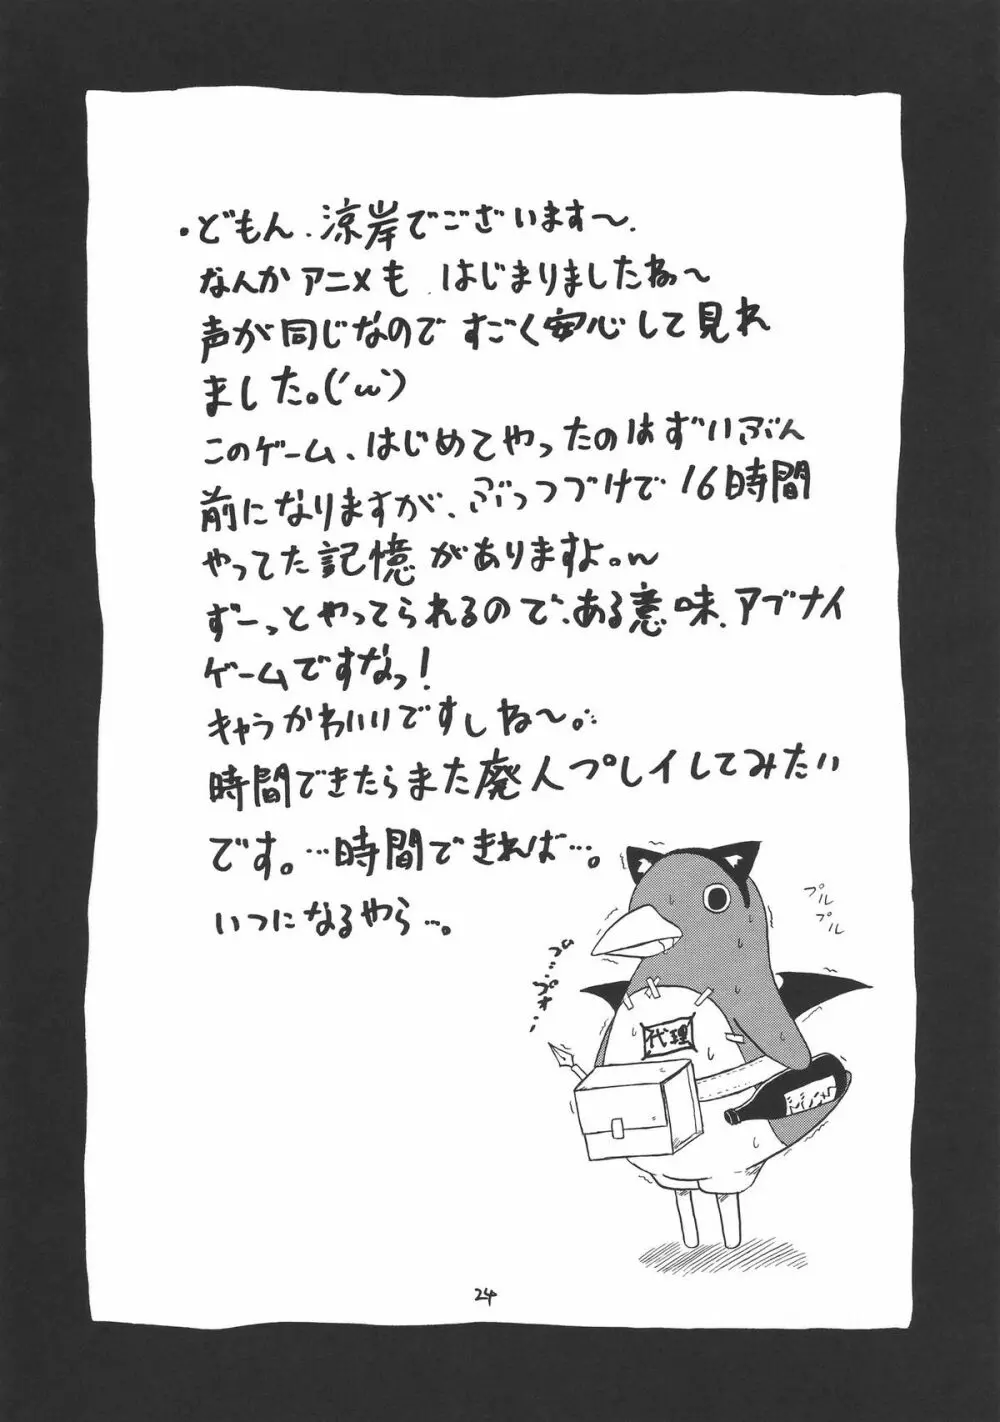 ・どもん、涼岸でございます〜.
なんかアニメも はじまりましたねぇ〜
声が同じなので すごく安心して見れ
ました。(´ω`)
このゲーム、はじめてやったのはずいぶん
前になりますが、ぶっつづけで16時間
やってた記憶がありますよ。w
ずーっとやってられるので、ある意味、アブナイ
ゲームですなっ!
キャラかわいいですしね〜。
時間できたらまた廃人プレイしてみたい
です。…時間できれば…。
いつになるやら…。
プルプル
プ…プォ…
代理
24